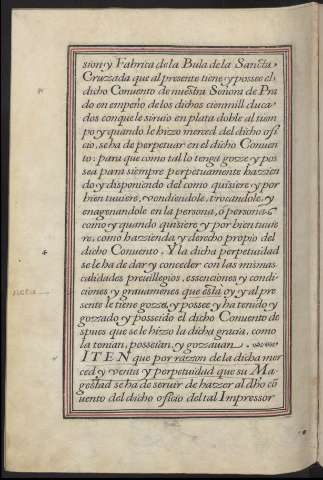 sion y Fabrica de la Bula de la Sancta
Cruzada que al presente tiene y possee el
dicho Conuento de nuestra Señora de Pra
do en empeño de los dichos cien mill duca
dos con que le siruio en plata doble al tiem
po y quando le hizzo merced del dicho ofi
cio, se ha de perpetuar en el dicho Conuen
to: para que como tal lo tenga gozze y pos
sea para siempre perpetuamente hazzien
do y disponiendo del como quisiere y por
bien tuuiere, vendiendole, trocandole, y
enagenandole en la persona, ó personas
como y quando quisiere y por bien tuuie
re, como hazzienda y derecho propio del
dicho Conuento. Y la dicha perpetuidad
se le ha de dar y conceder con las mismas
calidades preuillegios, essenciones y condi
ciones y grauamenes que esta oy y al pre
sente le tiene gozza, y possee y ha tenido y
gozzado y posseido el dicho Conuento de
spues que se le hizzo la dicha gracia, como
la tenian, posseian, y gozzauan.
nota
ITEN que por razzon de la dicha mer
ced y venta y perpetuidad que su Ma
gestad se ha de seruir de hazzer al dho cō
uento del dicho oficio del tal Impressor